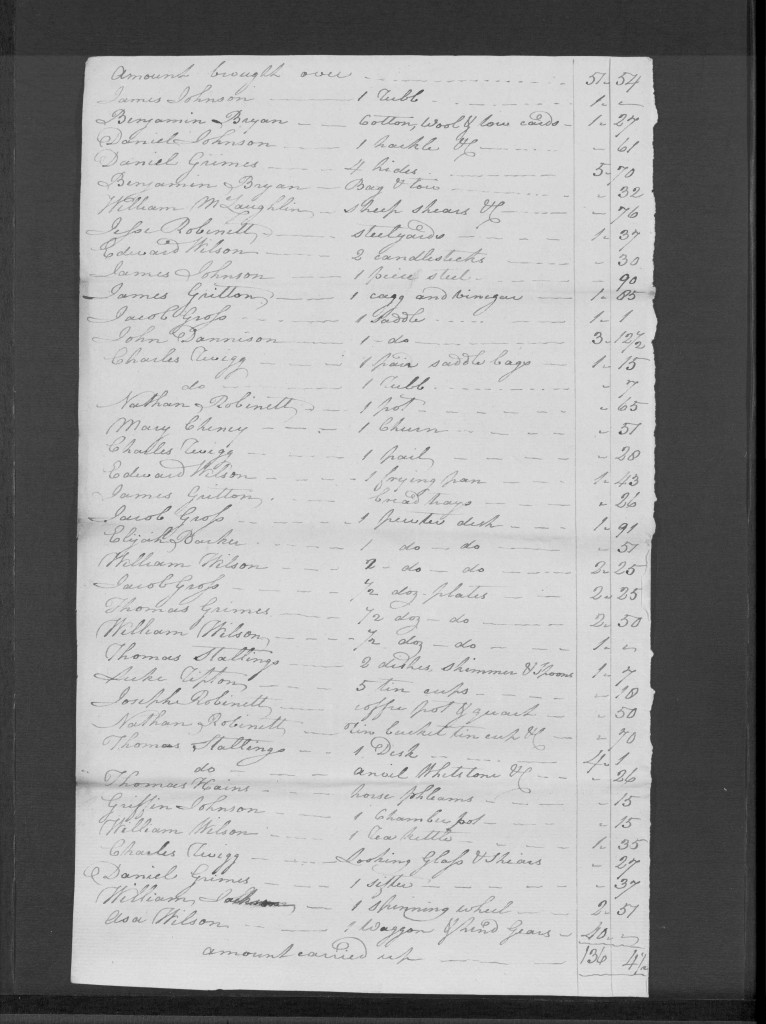 Amount brought over 51 - 54
James Johnson 1 Tubb 1 - "
Benjamin Bryan Cotton, Wool & tow cards 1 - 27
Daniel Johnson 1 hackle &C " 61
Daniel Grimes 4 hides 5 - 70
Benjamin Bryan Bag & tow " 32
William McLaughlin sheep shears &C " 76
Jesse Robinett steelyards 1 - 37
Edward Wilson 2 candlesticks " 30
James Johnson 1 piece steel " 90
James Gritton 1 cagg and vinegar 1 - 85
Jacob Gross 1 saddle 1 - 1
John Dannison 1 do 3 - 12 1/2
Charles Twigg 1 pair saddle bags 1 - 15
do 1 Tubb " 7
Nathan Robinett 1 pot " 65
Mary Cheney 1 Churn " 51
Charles Twigg 1 pail " 28
Edward Wilson 1 frying pan 1 - 43
James Gritton bread trays " 26
Jacob Gross 1 pewter dish 1 - 91
Elijah Darker 1 do - do " 51
William Wilson 2 - do - do 2 - 25
Jacob Gross 1/2 doz plates 2 - 25
Thomas Grimes 1/2 doz - do 2 - 50
William Wilson 1/2 doz - do 1 - "
Thomas Stallings 2 dishes, skimmer & spoons 1 - 7
Luke Tipton 5 tin cups " 18
Joseph Robinett coffee pot & quart " 50
Nathan Robinett tin bucket tin cup &C " 70
Thomas Stallings 1 Desk 4 - 1
do anvil Whitstone &C " 26
Thomas Hains horse phleams " 15
Griffin Johnson 1 Chamber pot " 15
William Wilson 1 Tea kettle 1 - 35
Charles Twigg Looking Glass & Shears " 27
Daniel Grimes 1 sifter " 37
William 1 spinning wheel 2 - 51
Asa Wilson 1 Waggon & hind Gears 40 - "
amount carried up 136 4 1/2